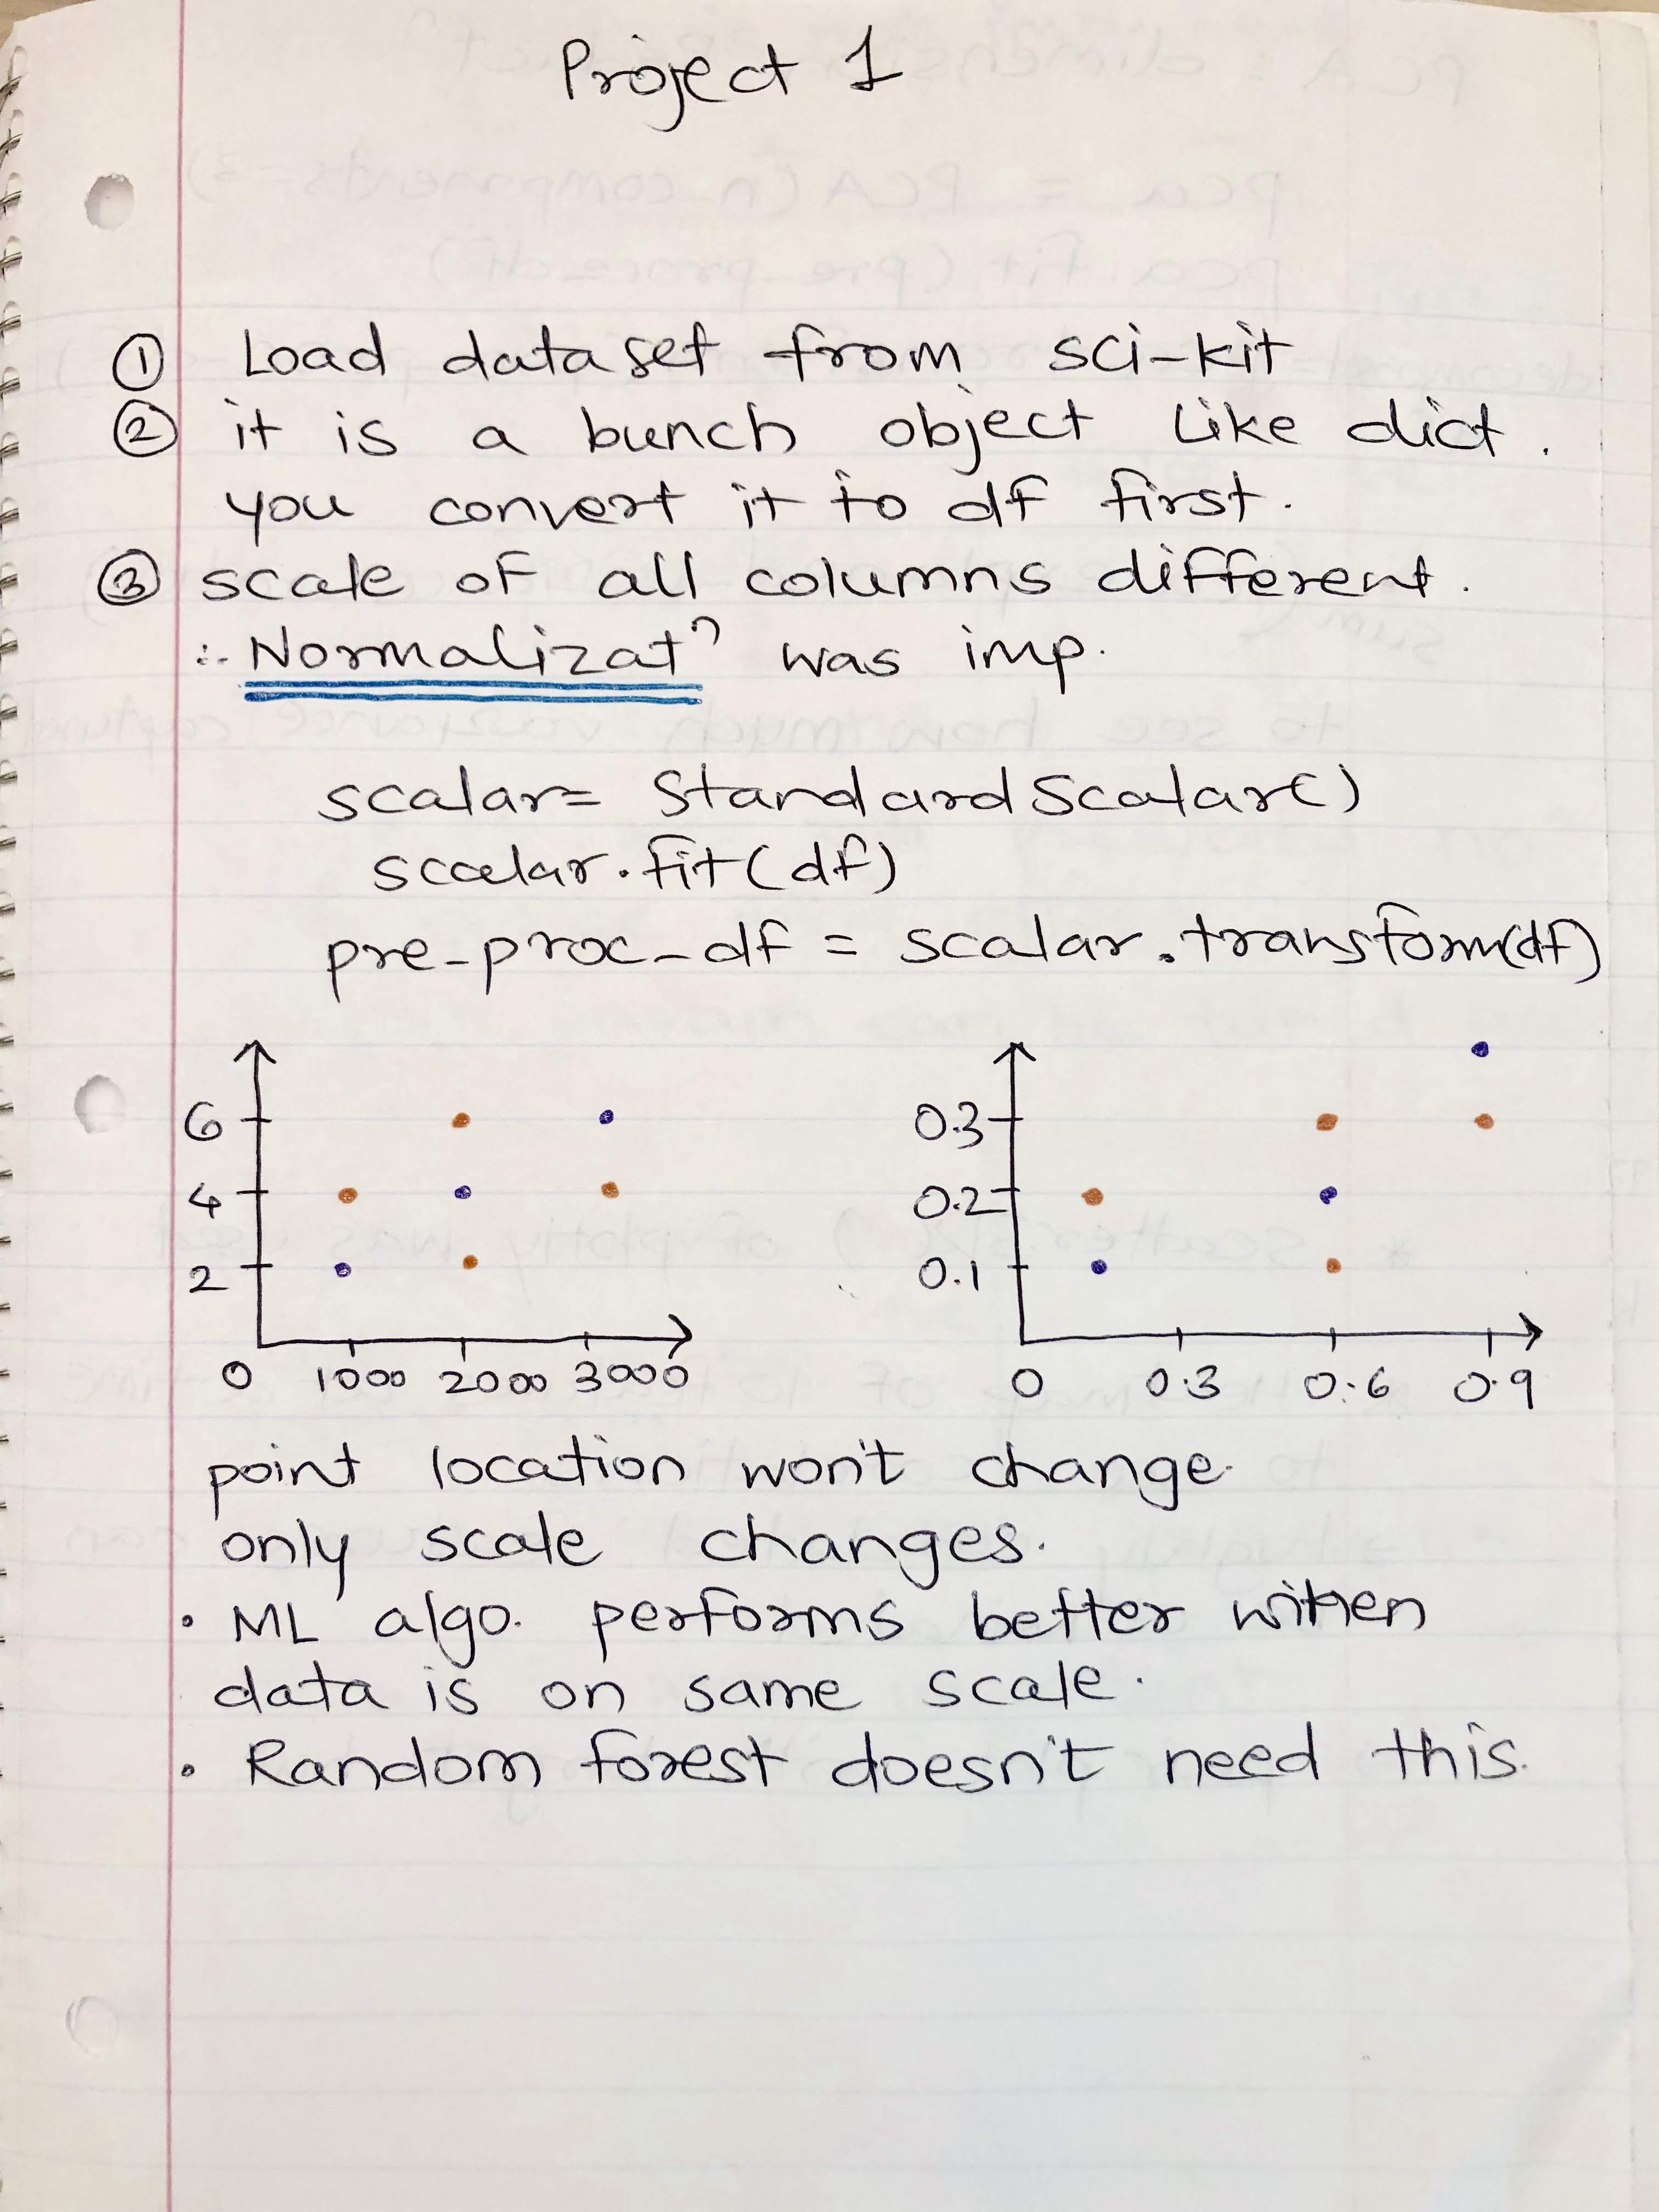 Project 1
① Load dataset from sci-kit
② it is a bunch object like dict.
you convert it to df first.
③ scale of all columns different.
∴ Normalizatⁿ was imp.
scalar= StandardScalar()
scalar.fit(df)
pre-proc-df = scalar.transform(df)
6
4
2
0 1000 2000 3000
0.3
0.2
0.1
0 0.3 0.6 0.9
point location won't change.
only scale changes.
• ML algo. performs better when
data is on same scale.
• Random forest doesn't need this.